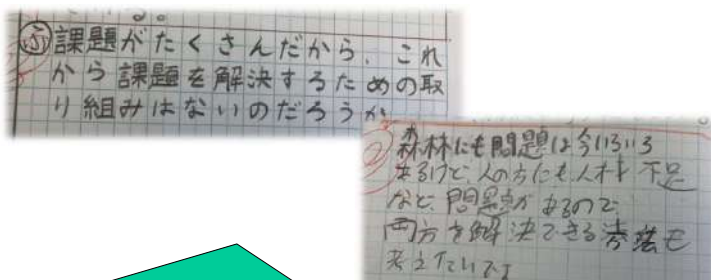 ふ課題がたくさんだから、これ
から課題を解決するための取
り組みはないのだろうか
森林にも問題は今いろいろ
あるけど、人の方にも人材不足
など、問題点があるので
両方を解決できる方法も
考えたいです